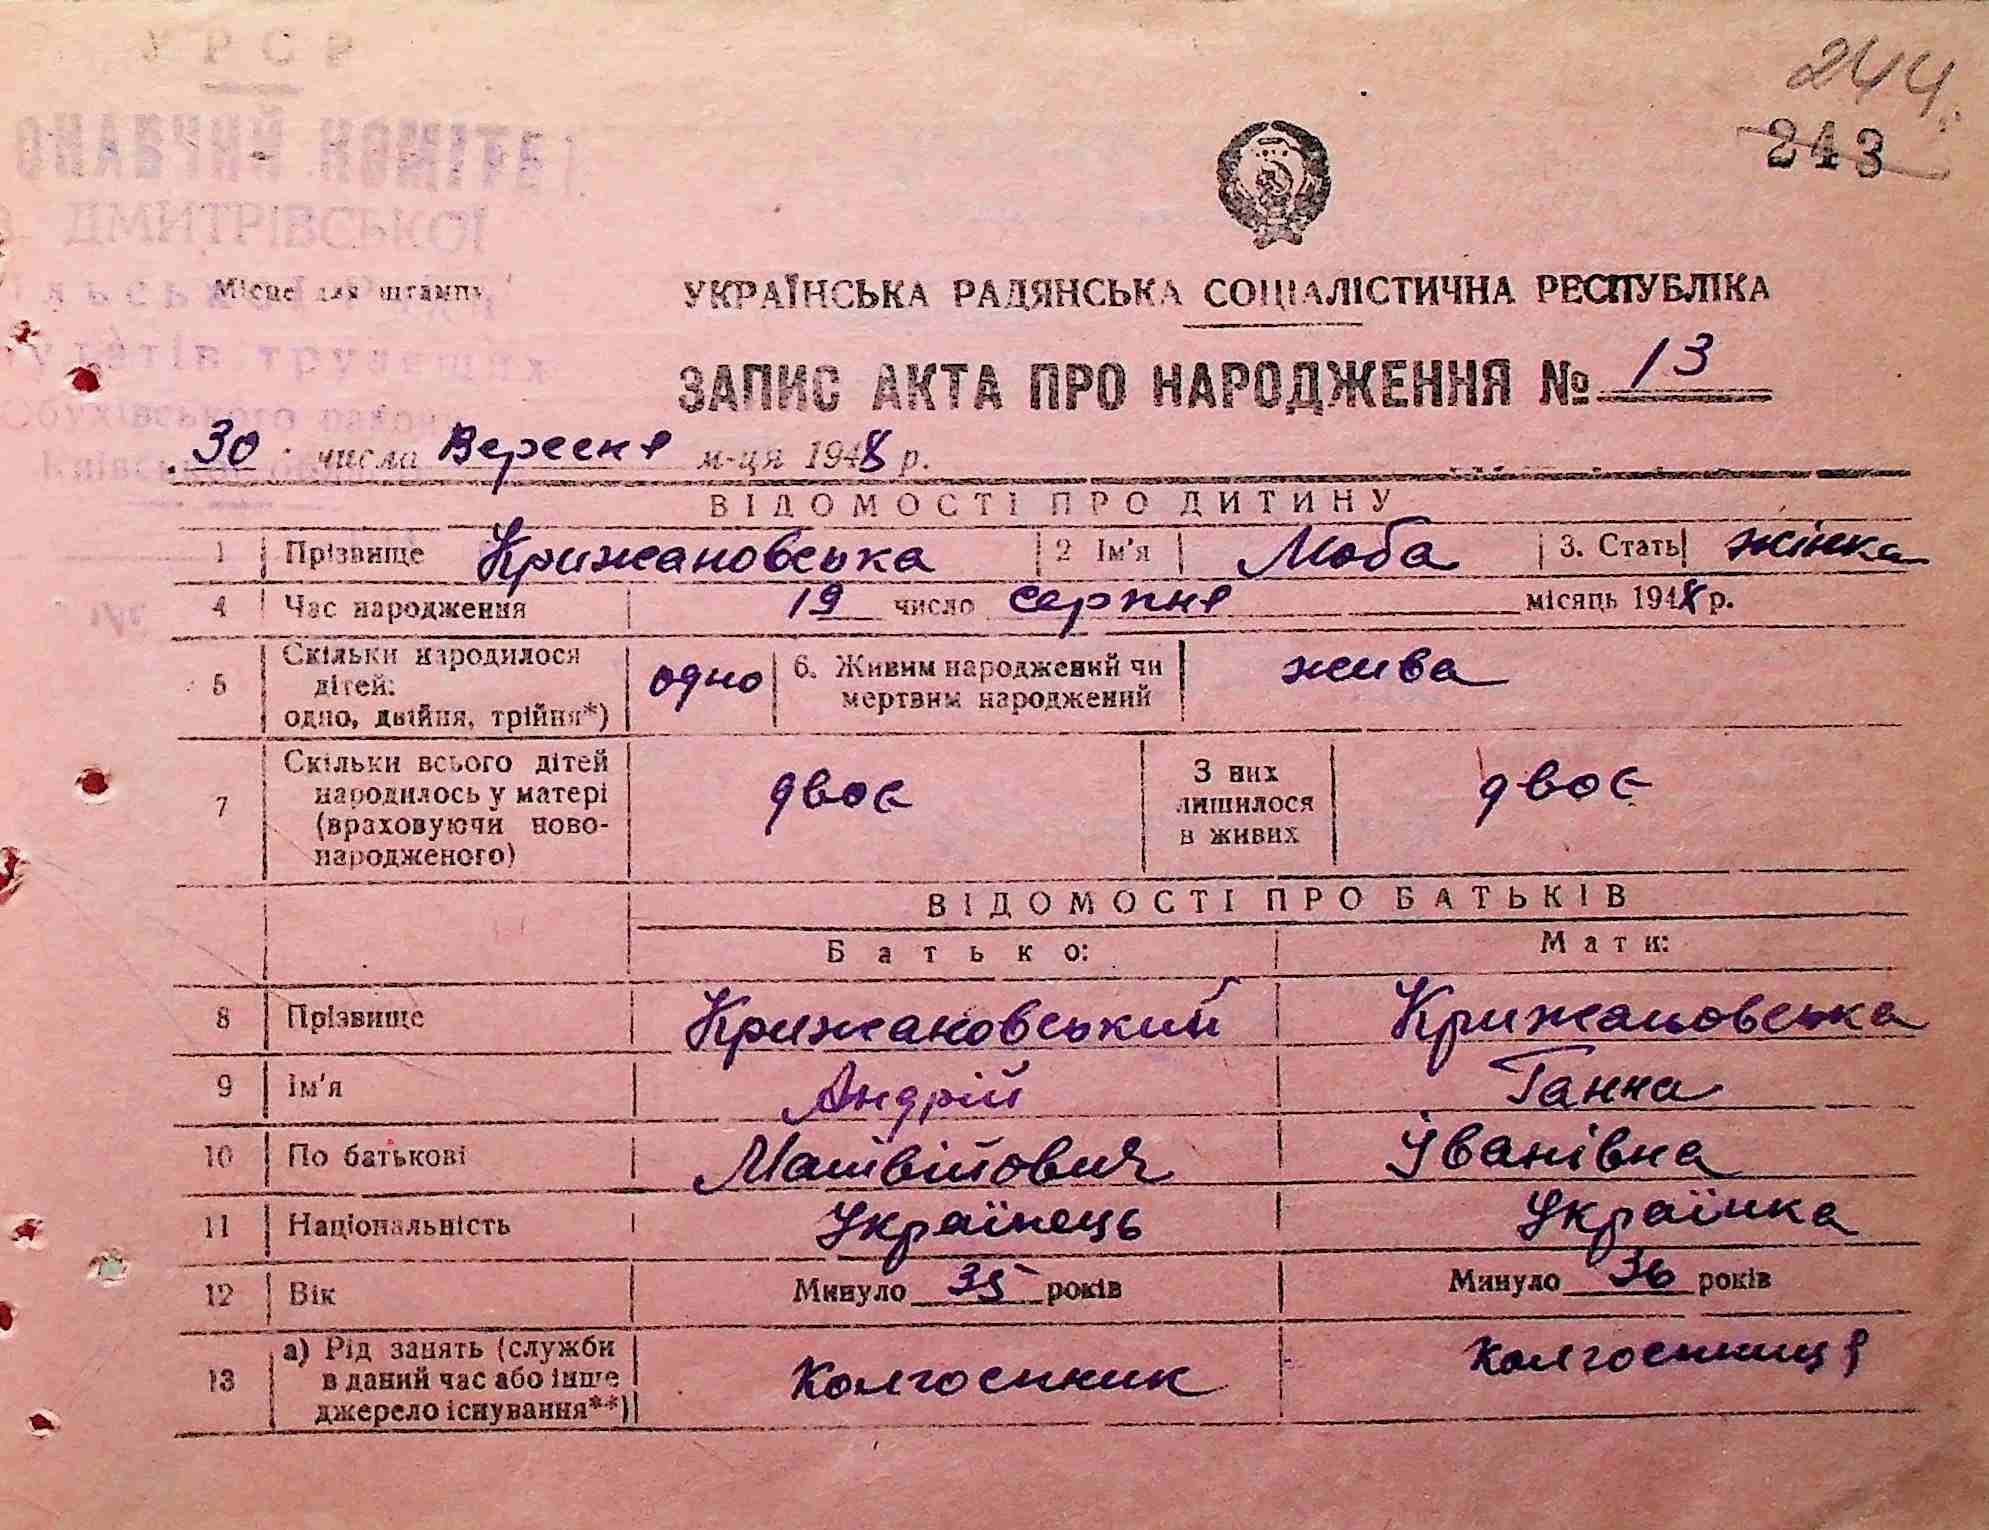 УРСР
244
243
ОНАВЧИЙ КОМІТЕТ
ДМИТРІВСЬКОЇ
Місце для штампу
УКРАЇНСЬКА РАДЯНСЬКА СОЦІАЛІСТИЧНА РЕСПУБЛІКА
трудящих
ЗАПИС АКТА ПРО НАРОДЖЕННЯ № 13
бухівського району
30 числа Вересня м-ця 1948 р.
ВІДОМОСТІ ПРО ДИТИНУ
1 Прізвище Крижановська 2 Ім'я Люба 3. Стать жінка
4 Час народження 19 число серпня місяць 1948 р.
5 Скільки народилося дітей: одно, двійня, трійня*) одно 6. Живим народжений чи мертвим народжений жива
7 Скільки всього дітей народилось у матері (враховуючи ново-народженого) двоє З них лишилося в живих двоє
ВІДОМОСТІ ПРО БАТЬКІВ
Батько: Мати:
8 Прізвище Крижановський Крижановська
9 Ім'я Андрій Ганна
10 По батькові Матвійович Іванівна
11 Національність Українець Українка
12 Вік Минуло 35 років Минуло 36 років
13 а) Рід занять (служби в даний час або інше джерело існування**) Колгоспник Колгоспниця